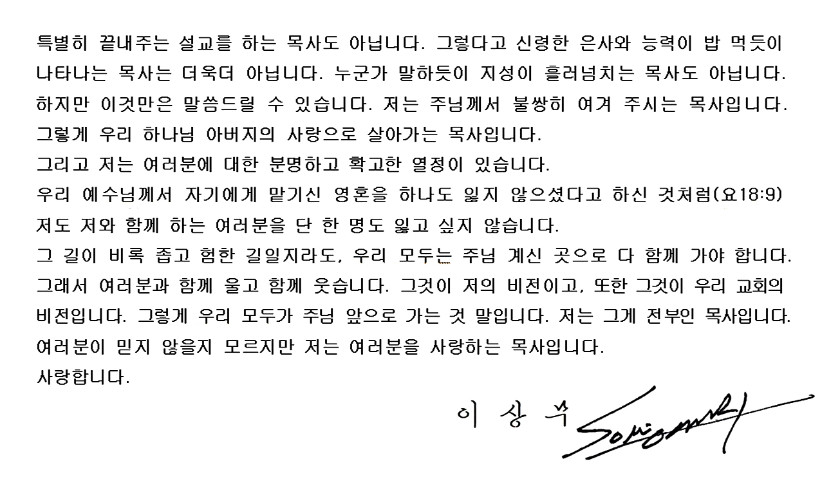 특별히 끝내주는 설교를 하는 목사도 아닙니다. 그렇다고 신령한 은사와 능력이 밥 먹듯이
나타나는 목사는 더욱더 아닙니다. 누군가 말하듯이 지성이 흘러넘치는 목사도 아닙니다.
하지만 이것만은 말씀드릴 수 있습니다. 저는 주님께서 불쌍히 여겨 주시는 목사입니다.
그렇게 우리 하나님 아버지의 사랑으로 살아가는 목사입니다.
그리고 저는 여러분에 대한 분명하고 확고한 열정이 있습니다.
우리 예수님께서 자기에게 맡기신 영혼을 하나도 잃지 않으셨다고 하신 것처럼(요18:9)
저도 저와 함께 하는 여러분을 단 한 명도 잃고 싶지 않습니다.
그 길이 비록 좁고 험한 길일지라도, 우리 모두는 주님 계신 곳으로 다 함께 가야 합니다.
그래서 여러분과 함께 울고 함께 웃습니다. 그것이 저의 비전이고, 또한 그것이 우리 교회의
비전입니다. 그렇게 우리 모두가 주님 앞으로 가는 것 말입니다. 저는 그게 전부인 목사입니다.
여러분이 믿지 않을지 모르지만 저는 여러분을 사랑하는 목사입니다.
사랑합니다.
이 상 부